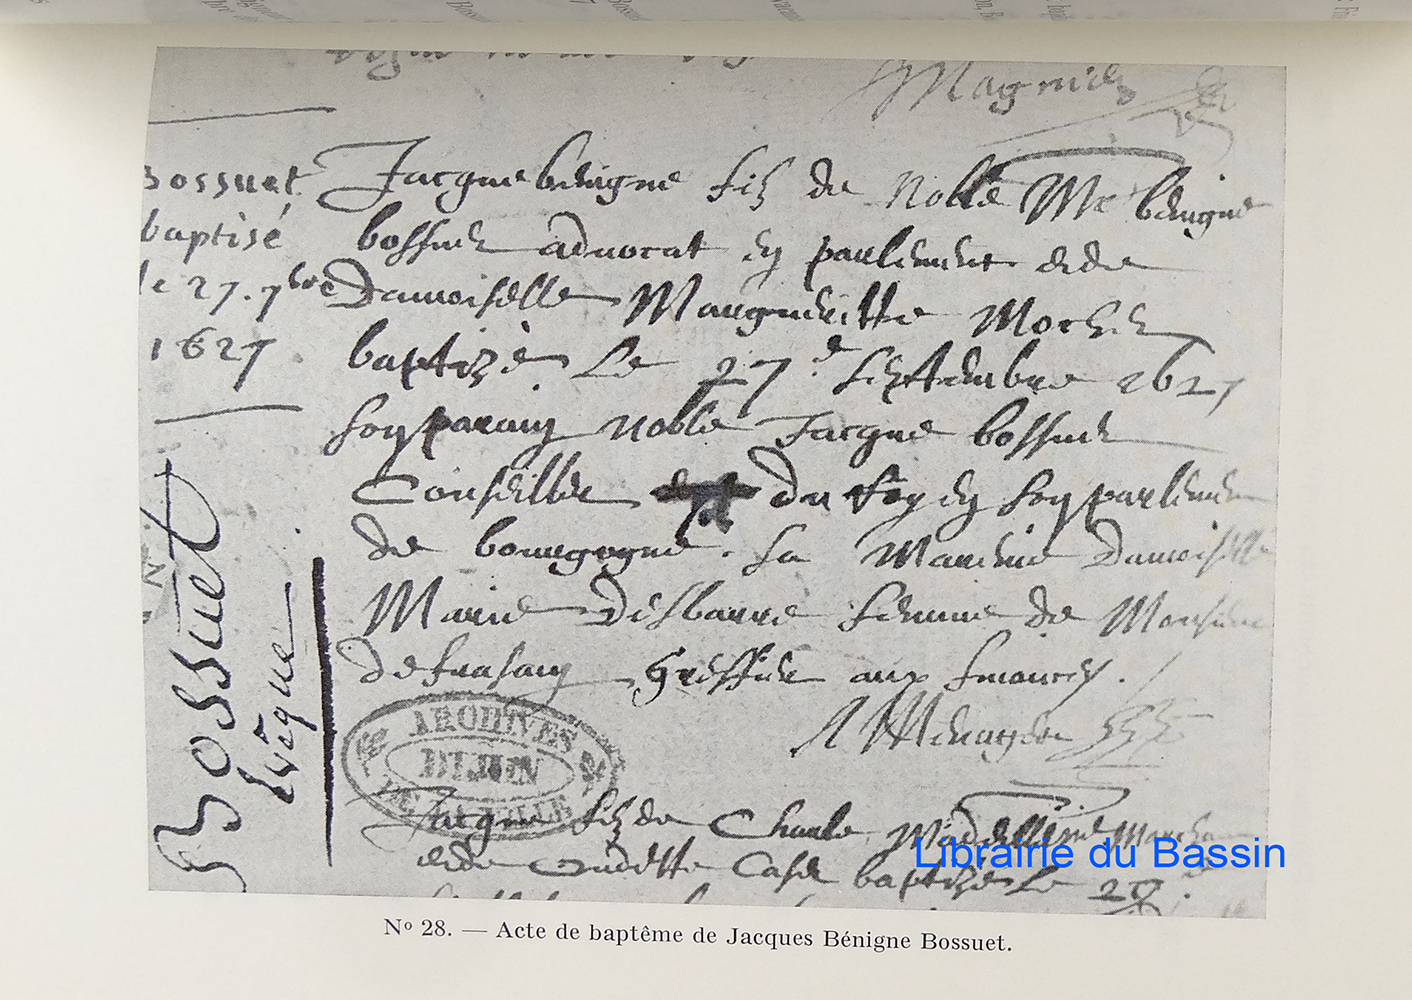 Magnien
Bossuet
baptisé
le 27. 7bre
1627
Jacque benigne filz de Noble Me benigne
bossuet advocat en parlement et de
Damoiselle Margueritte Mochet
baptizé Le 27e septembre 1627
son parain noble Jacque bossuet
Conseiller du Roy en son parlement
de bourgogne. sa Mareine Damoiselle
Marie Desbarre femme de Monsieur
de greffier aux
Bossuet
Evêque
ARCHIVES
DIJON
DE LA VILLE
Jacque filz de Charle
et de baptizé Le 27e
Librairie du Bassin
No 28. — Acte de baptême de Jacques Bénigne Bossuet.